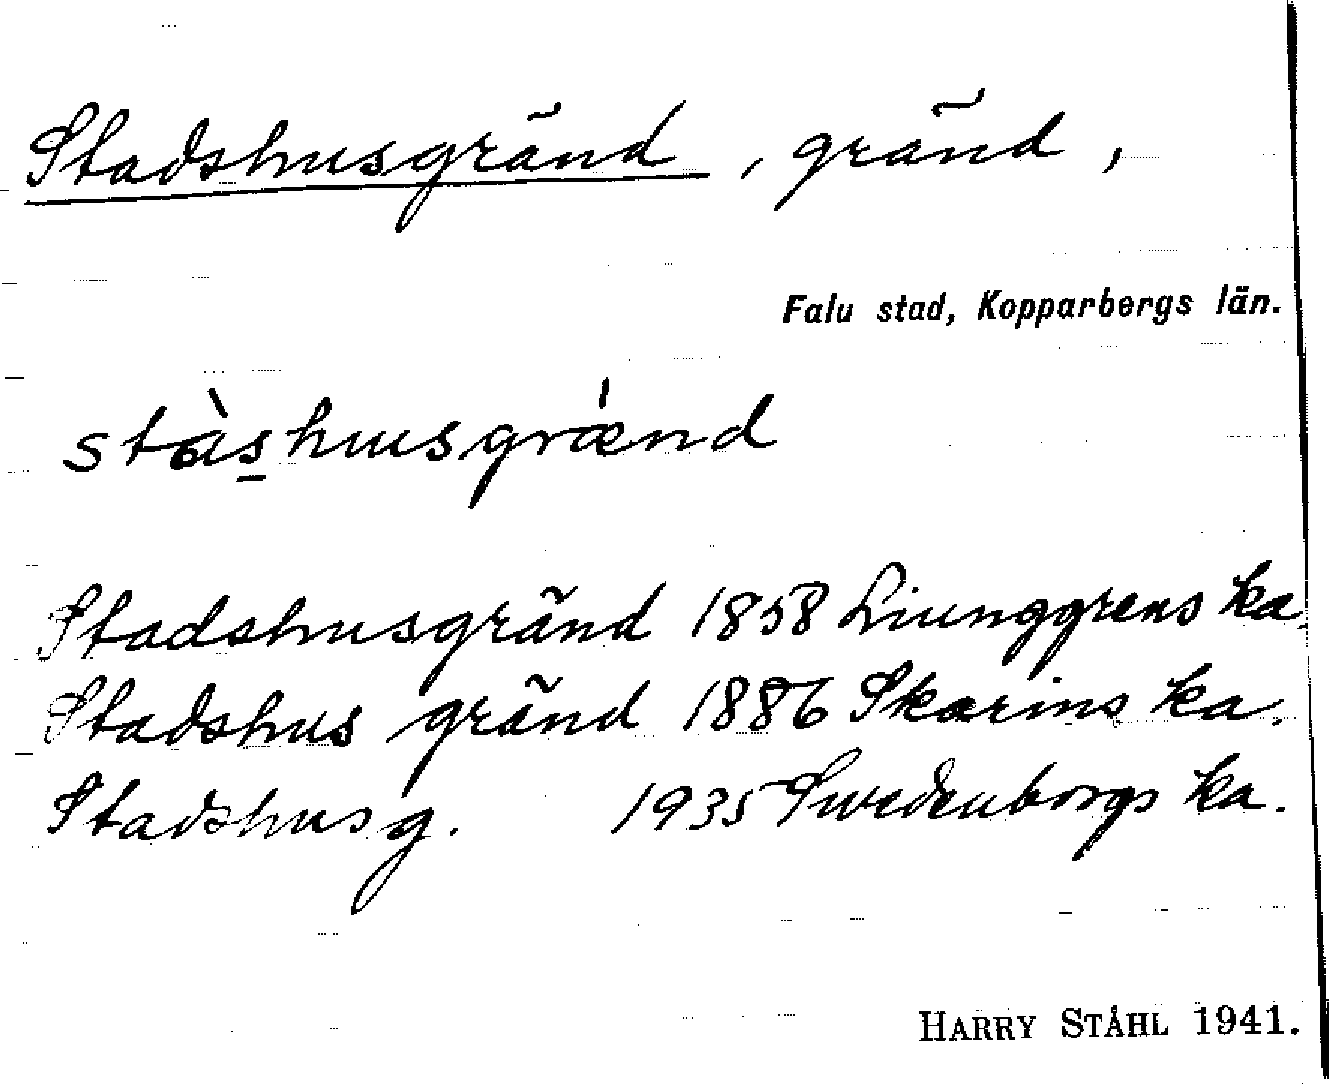 Stadshusgränd, gränd,
Falu stad, Kopparbergs län.
stàs̲husgrǽnd
Stadshusgränd 1858 Liunggrens ka.
Stadshus gränd 1886 Skarins ka.
Stadshusg. 1935 Swedenborgs ka.
HARRY STÅHL 1941.